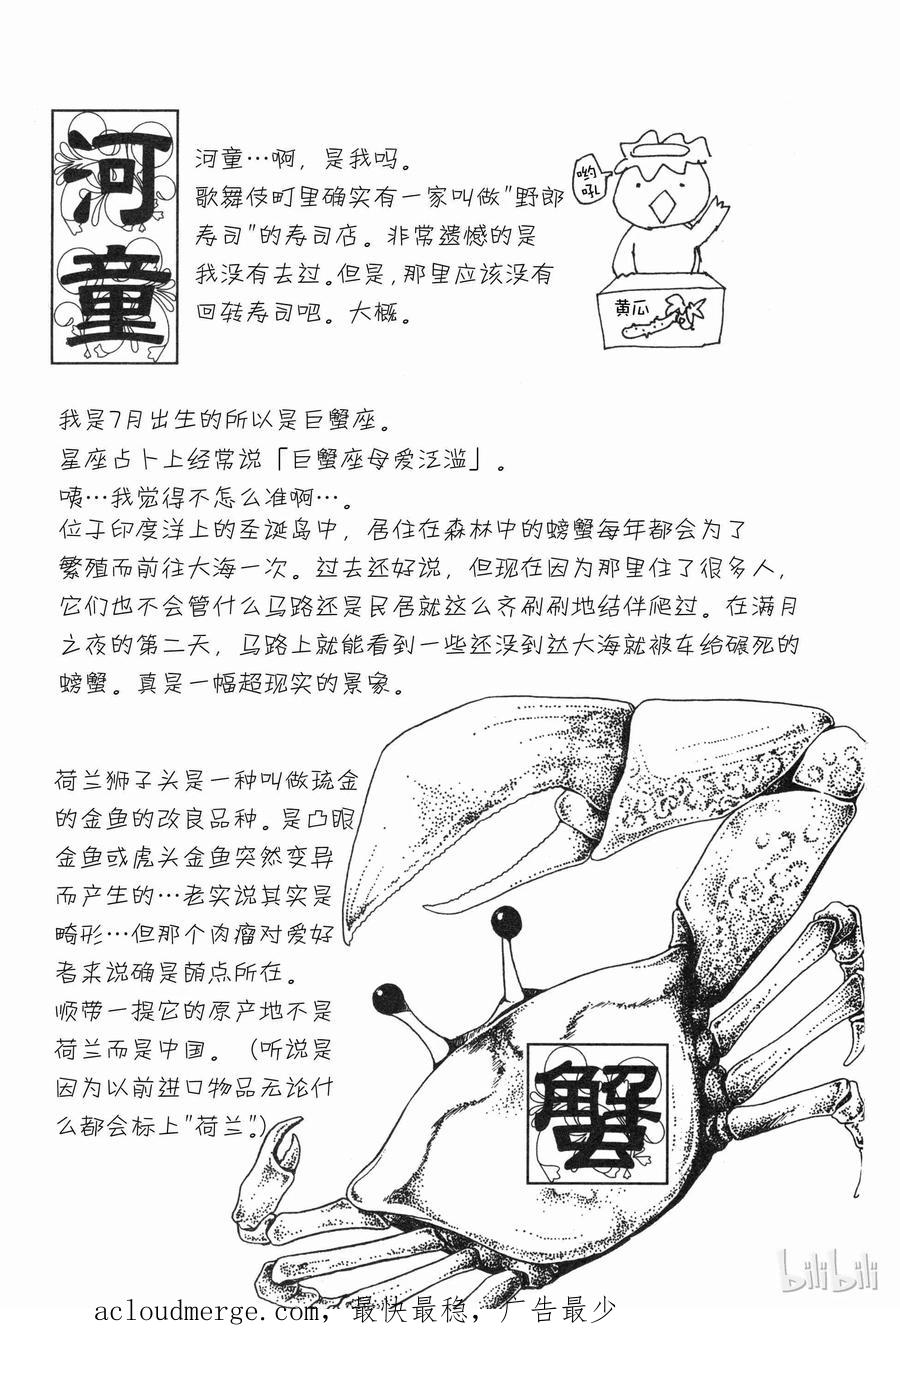 河童
河童…啊，是我吗。
歌舞伎町里确实有一家叫做"野郎
寿司"的寿司店。非常遗憾的是
我没有去过。但是，那里应该没有
回转寿司吧。大概。
哟
吼
黄瓜
我是7月出生的所以是巨蟹座。
星座占卜上经常说「巨蟹座母爱泛滥」。
咦…我觉得不怎么准啊…。
位于印度洋上的圣诞岛中，居住在森林中的螃蟹每年都会为了
繁殖而前往大海一次。过去还好说，但现在因为那里住了很多人，
它们也不会管什么马路还是民居就这么齐刷刷地结伴爬过。在满月
之夜的第二天，马路上就能看到一些还没到达大海就被车给碾死的
螃蟹。真是一幅超现实的景象。
荷兰狮子头是一种叫做琉金
的金鱼的改良品种。是凸眼
金鱼或虎头金鱼突然变异
而产生的…老实说其实是
畸形…但那个肉瘤对爱好
者来说确是萌点所在。
顺带一提它的原产地不是
荷兰而是中国。（听说是
因为以前进口物品无论什
么都会标上"荷兰"。）
蟹
bilibili
acloudmerge.com，最快最稳，广告最少